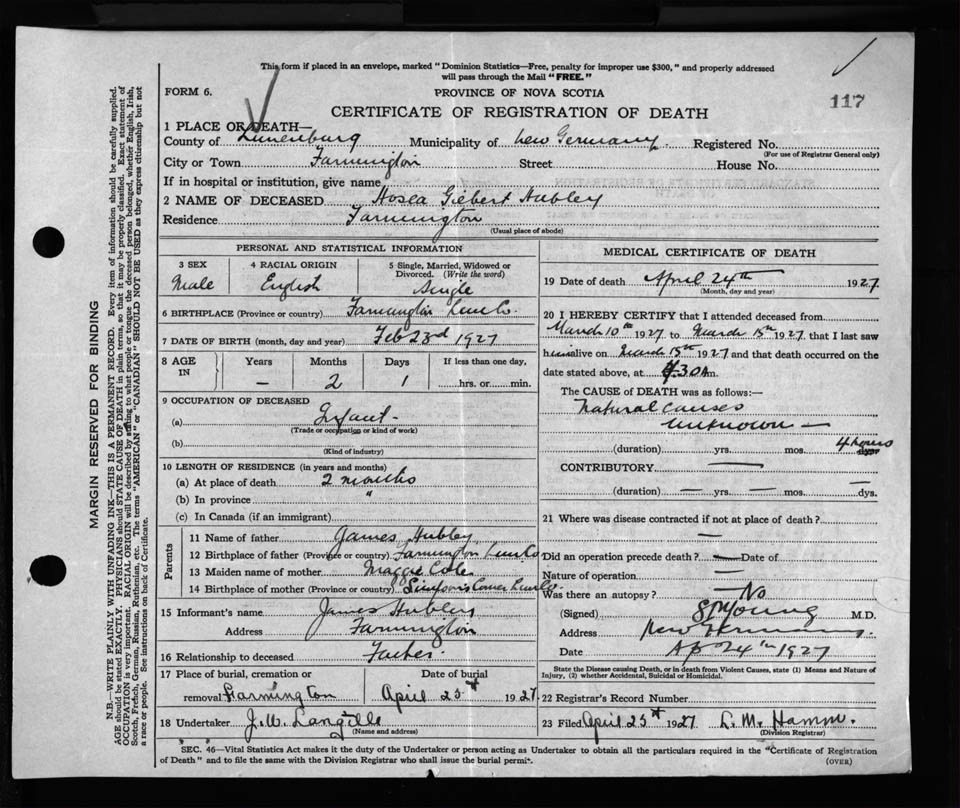 This form if placed in an envelope, marked "Dominion Statistics—Free, penalty for improper use $300," and properly addressed
will pass through the Mail "FREE."
117
FORM 6.
PROVINCE OF NOVA SCOTIA
CERTIFICATE OF REGISTRATION OF DEATH
1 PLACE OF DEATH—
County of Lunenburg Municipality of New Germany Registered No.
(For use of Registrar General only)
City or Town Farmington Street House No.
If in hospital or institution, give name
2 NAME OF DECEASED Hosea Giebert Hubley
Residence Farmington
(Usual place of abode)
PERSONAL AND STATISTICAL INFORMATION
3 SEX 4 RACIAL ORIGIN 5 Single, Married, Widowed or
Divorced. (Write the word)
Male English Single
6 BIRTHPLACE (Province or country) Farmington Lun Co.
7 DATE OF BIRTH (month, day and year) Feb 23rd 1927
8 AGE IN Years Months Days If less than one day,
— 2 1 hrs. or min.
9 OCCUPATION OF DECEASED
(a) Infant
(Trade or occupation or kind of work)
(b)
(Kind of industry)
10 LENGTH OF RESIDENCE (in years and months)
(a) At place of death 2 months
(b) In province "
(c) In Canada (if an immigrant)
Parents
11 Name of father James Hubley
12 Birthplace of father (Province or country) Farmington Lun Co
13 Maiden name of mother Maggie Cole
14 Birthplace of mother (Province or country) Lun Co
15 Informant's name James Hubley
Address Farmington
16 Relationship to deceased Father
17 Place of burial, cremation or Date of burial
removal Farmington April 25 1927
18 Undertaker J.W. Langille
(Name and address)
MEDICAL CERTIFICATE OF DEATH
19 Date of death April 24th 1927
(Month, day and year)
20 I HEREBY CERTIFY that I attended deceased from
March 10th 1927 to March 15th 1927 that I last saw
him alive on March 15th 1927 and that death occurred on the
date stated above, at 30 A m.
The CAUSE of DEATH was as follows:—
Natural causes
unknown —
(duration) yrs. mos. 4 hours dys.
CONTRIBUTORY —
(duration) — yrs. — mos. — dys.
21 Where was disease contracted if not at place of death?
—
Did an operation precede death? — Date of
Nature of operation —
Was there an autopsy? — No
(Signed) Young M.D.
Address New Germany
Date Ap 24th 1927
State the Disease causing Death, or in death from Violent Causes, state (1) Means and Nature of
Injury, (2) whether Accidental, Suicidal or Homicidal.
22 Registrar's Record Number
23 Filed April 25 1927 L. M. Hamm.
(Division Registrar)
SEC. 46—Vital Statistics Act makes it the duty of the Undertaker or person acting as Undertaker to obtain all the particulars required in the "Certificate of Registration
of Death" and to file the same with the Division Registrar who shall issue the burial permit.
(OVER)
MARGIN RESERVED FOR BINDING
N.B.—WRITE PLAINLY WITH UNFADING INK—THIS IS A PERMANENT RECORD. Every item of information should be carefully supplied.
AGE should be stated EXACTLY. PHYSICIANS should STATE CAUSE OF DEATH in plain terms, so that it may be properly classified. Exact statement of
OCCUPATION is very important. RACIAL ORIGIN will be described by stating to what people or tongue the deceased person belonged, whether English, Irish,
Scotch, French, German, Russian, Ruthenian, etc. The terms "AMERICAN" or "CANADIAN" SHOULD NOT BE USED as they express citizenship but not
a race or people. See instructions on back of Certificate.